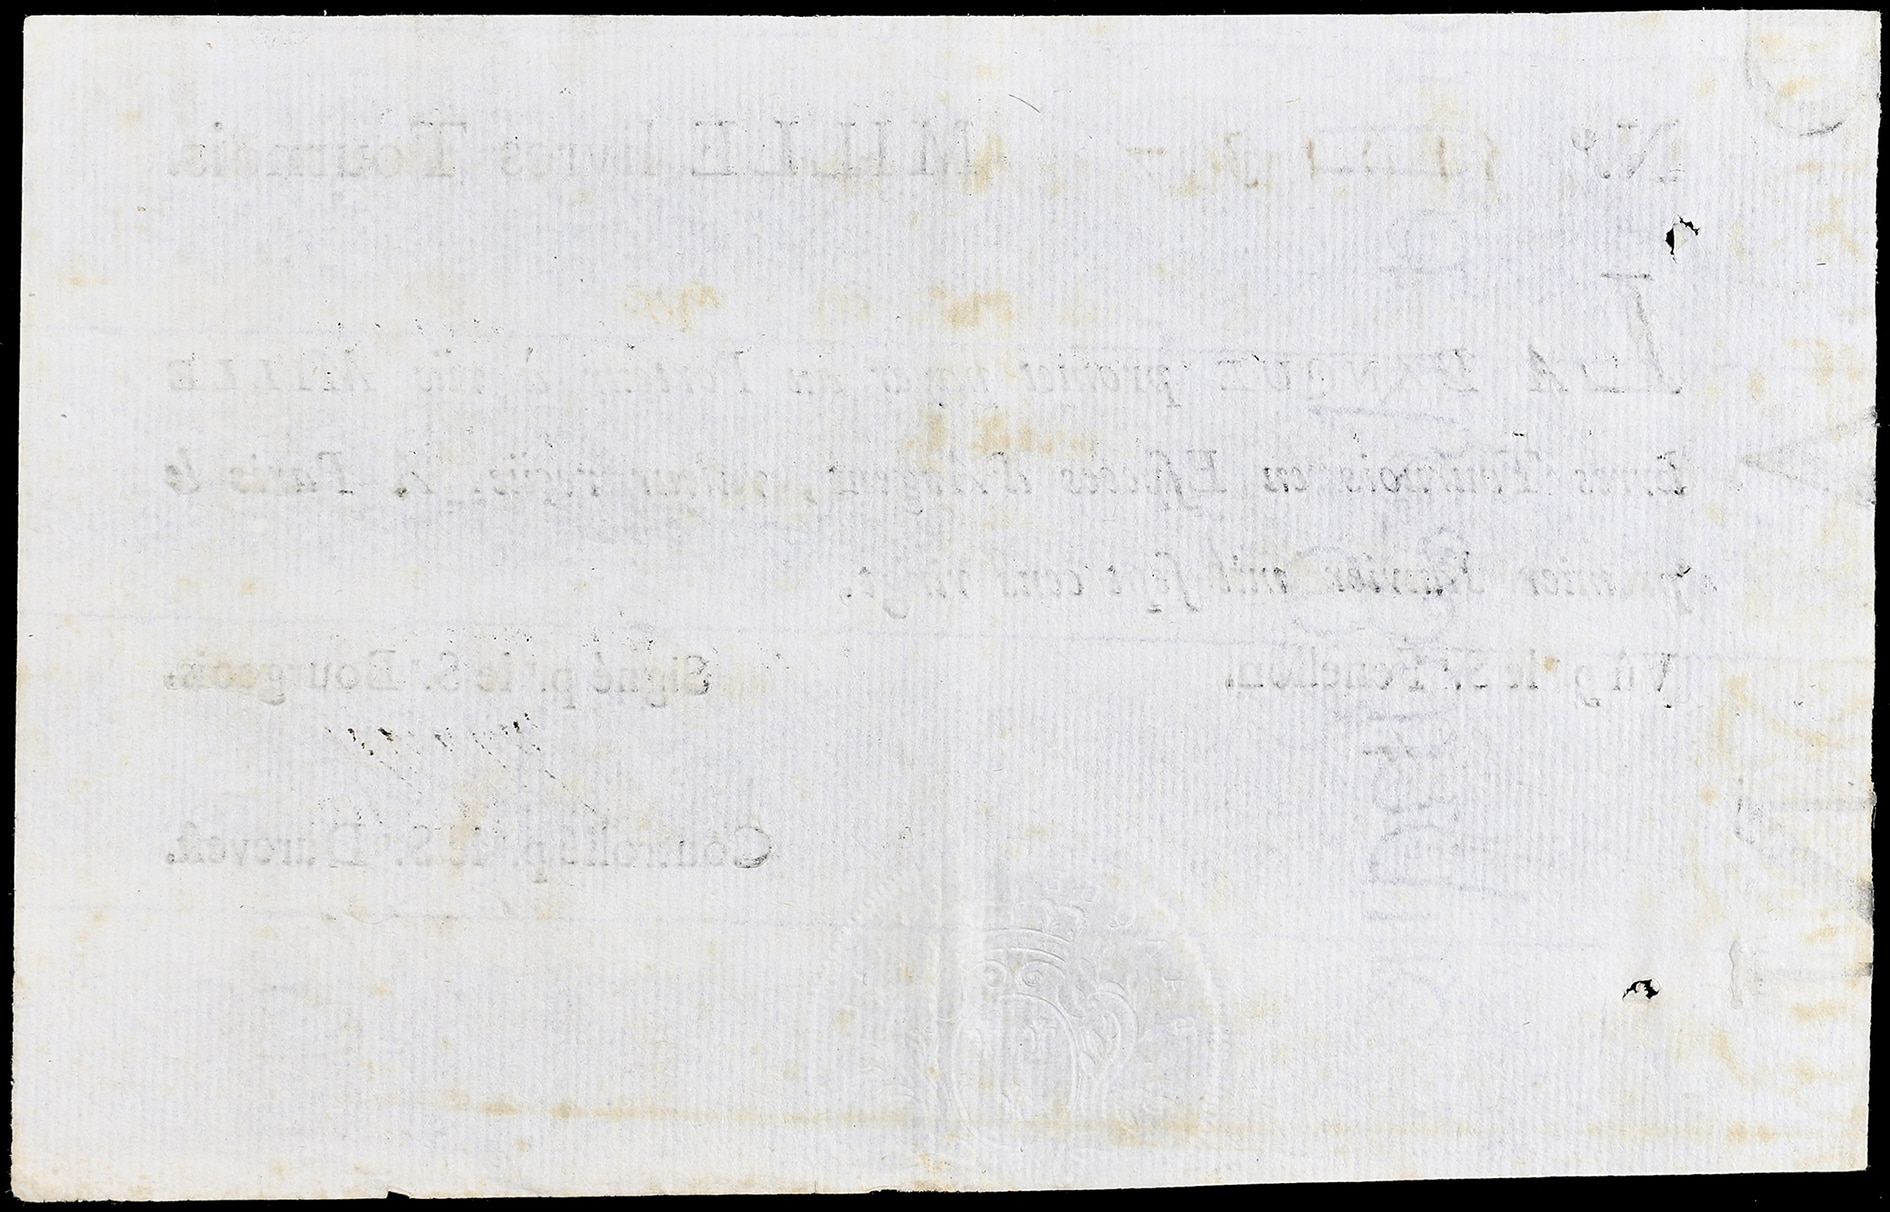 N.º MILLE livres Tournois.
LA BANQUE promet payer au Porteur à vüe MILLE
livres Tournois en Eſpeces d'Argent, valeur reçeüe. A Paris le
premier Janvier mil ſept cens vingt.
Vû p.r le S.r Fenellon. Signé p.r le S.r Bourgeois.
Controllé p.r le S.r Dureveſt.